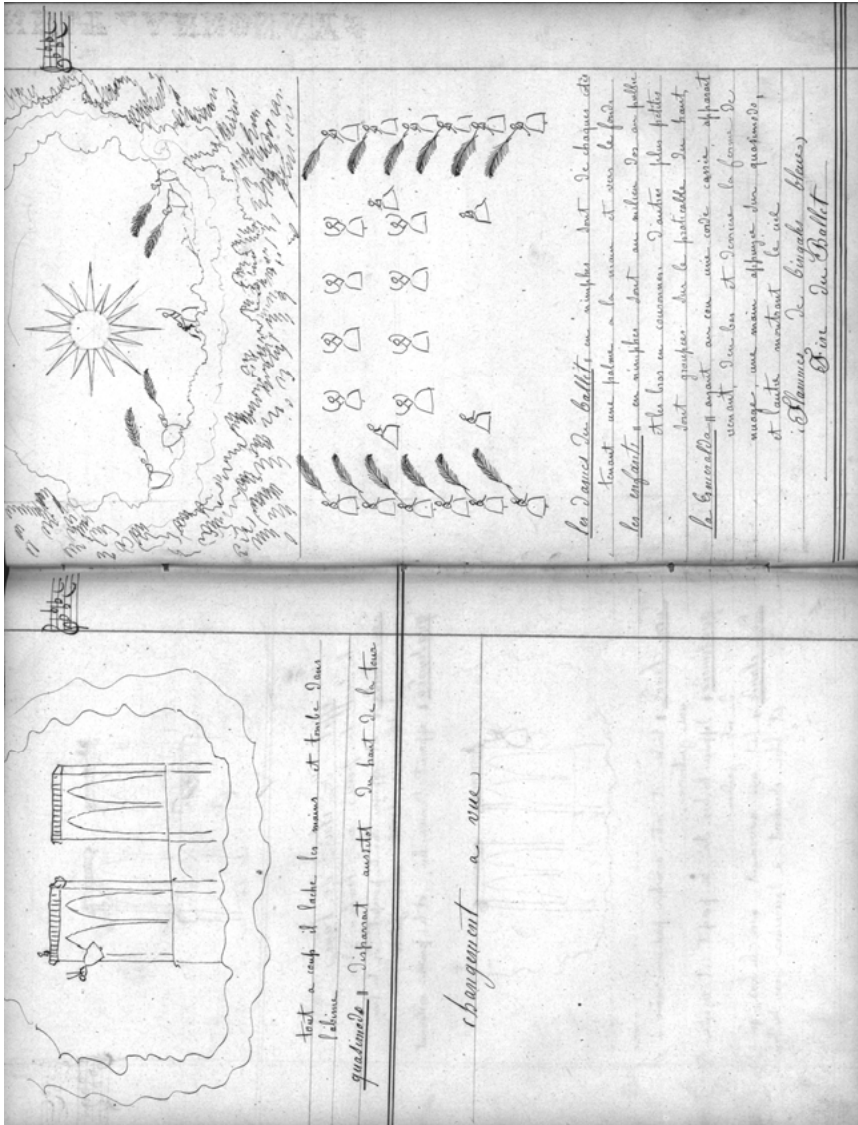 tout a coup il lache les mains et tombe dans
l'abime
quasimodo " disparrait aussitot du haut de la tour
changement a vue
les dames du ballet " en nimphes sont de chaques cotés
tenant une palme a la main et vers le fond
les enfants " en nimphes sont au milieu dos au public
et les bras en couronnes d'autres plus petites
sont groupées sur le praticable du haut,
la Esmeralda " ayant au cou une corde cassée apparait
venant d'en bas et derriere la ferme de
nuage, une main appuyée sur quasimodo,
et l'autre montrant le ciel
(Flammes de bengale
Fin du Ballet